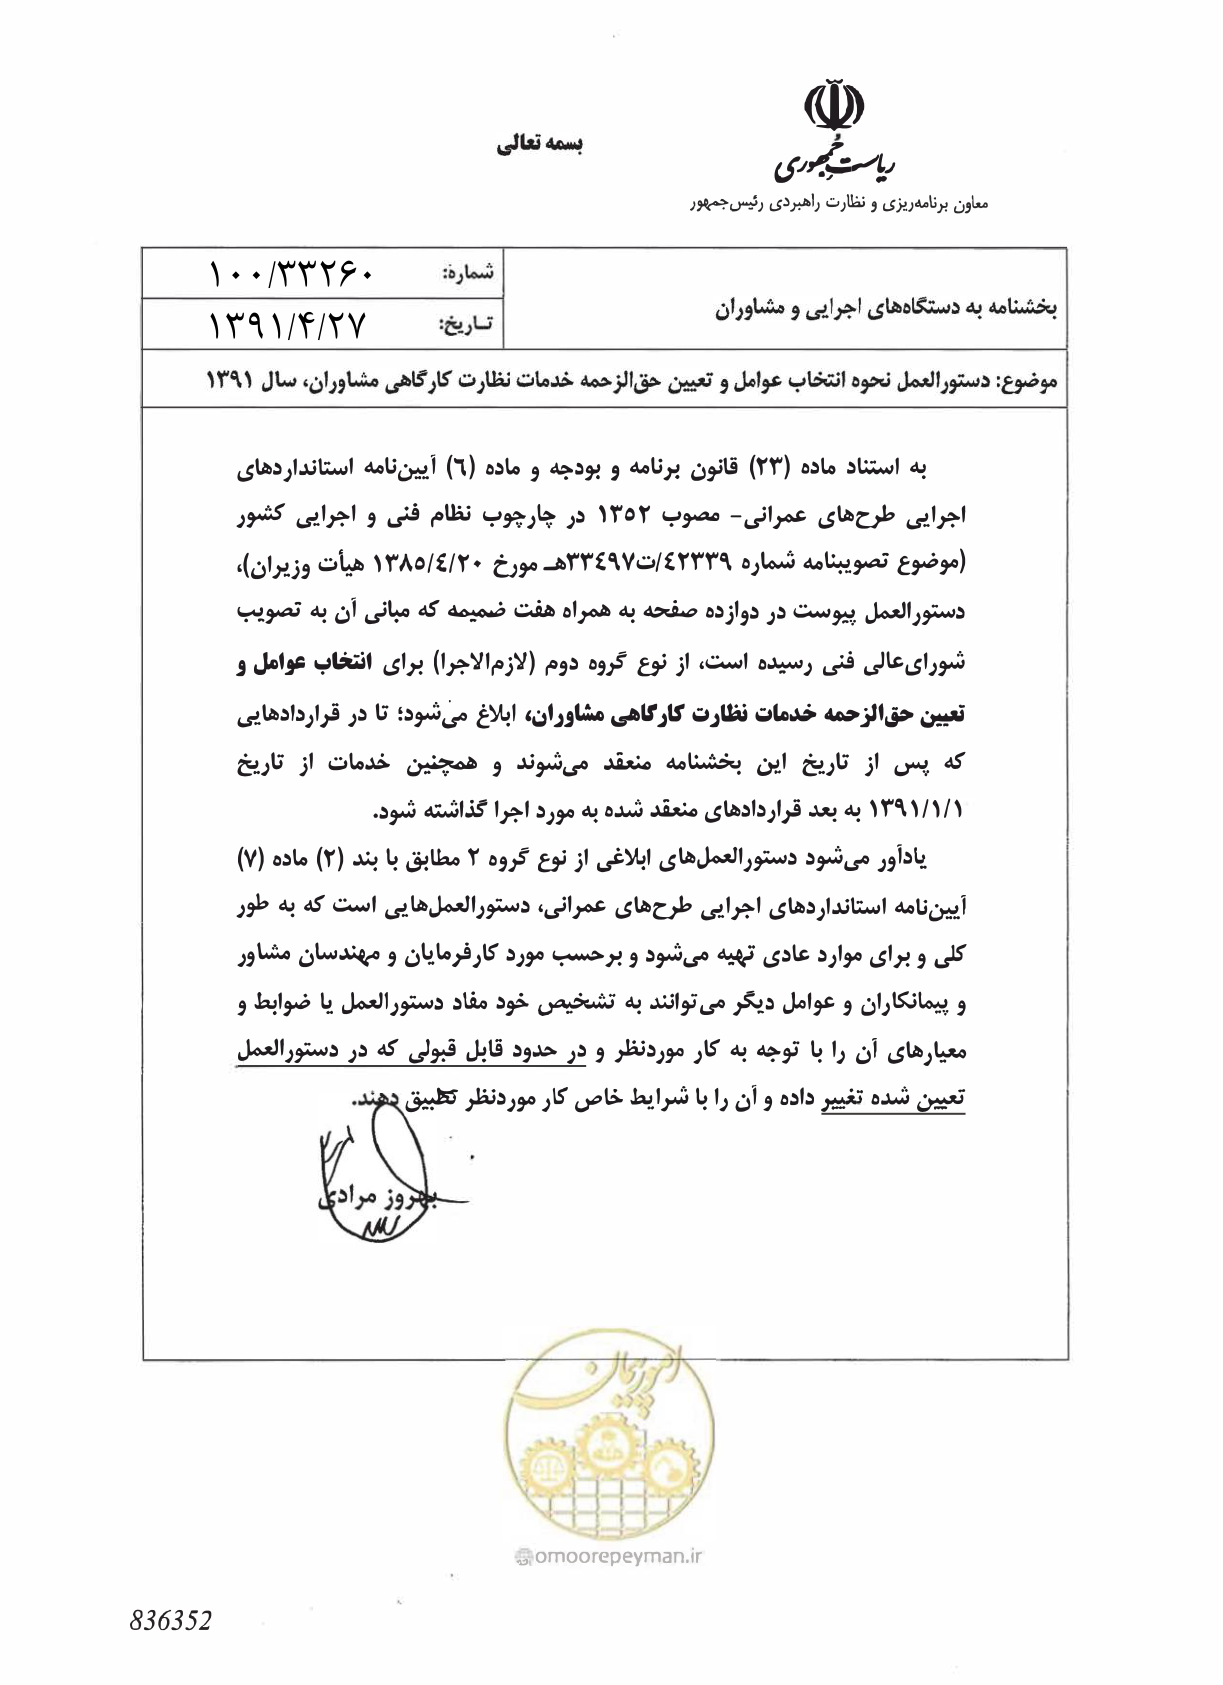 بسمه تعالی
ریاست جمهوری
معاون برنامه‌ریزی و نظارت راهبردی رئیس‌جمهور
بخشنامه به دستگاه‌های اجرایی و مشاوران
شماره: ۱۰۰/۳۳۲۶۰
تـاریخ: ۱۳۹۱/۴/۲۷
موضوع: دستورالعمل نحوه انتخاب عوامل و تعیین حق‌الزحمه خدمات نظارت کارگاهی مشاوران، سال ۱۳۹۱
به استناد ماده (۲۳) قانون برنامه و بودجه و ماده (٦) آیین‌نامه استانداردهای
اجرایی طرح‌های عمرانی- مصوب ۱۳۵۲ در چارچوب نظام فنی و اجرایی کشور
(موضوع تصویبنامه شماره ٤۲۳۳۹/ت۳۳٤۹۷هـ مورخ ۱۳۸۵/٤/۲۰ هیأت وزیران)،
دستورالعمل پیوست در دوازده صفحه به همراه هفت ضمیمه که مبانی آن به تصویب
شورای‌عالی فنی رسیده است، از نوع گروه دوم (لازم‌الاجرا) برای انتخاب عوامل و
تعیین حق‌الزحمه خدمات نظارت کارگاهی مشاوران، ابلاغ می‌شود؛ تا در قراردادهایی
که پس از تاریخ این بخشنامه منعقد می‌شوند و همچنین خدمات از تاریخ
۱۳۹۱/۱/۱ به بعد قراردادهای منعقد شده به مورد اجرا گذاشته شود.
یادآور می‌شود دستورالعمل‌های ابلاغی از نوع گروه ۲ مطابق با بند (۲) ماده (۷)
آیین‌نامه استانداردهای اجرایی طرح‌های عمرانی، دستورالعمل‌هایی است که به طور
کلی و برای موارد عادی تهیه می‌شود و برحسب مورد کارفرمایان و مهندسان مشاور
و پیمانکاران و عوامل دیگر می‌توانند به تشخیص خود مفاد دستورالعمل یا ضوابط و
معیارهای آن را با توجه به کار موردنظر و در حدود قابل قبولی که در دستورالعمل
تعیین شده تغییر داده و آن را با شرایط خاص کار موردنظر تطبیق دهند.
بهروز مرادی
امور پیمان
@omoorepeyman.ir
836352